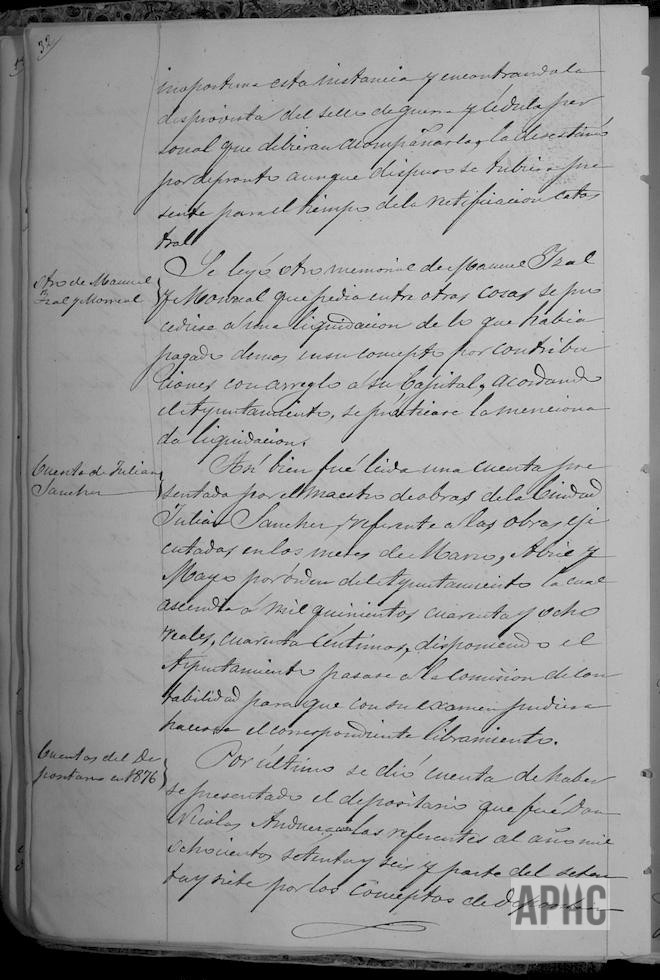 32
inoportuna esta instancia y encontrandola
desprovista del sello de guerra y cédula per
sonal que debieran acompañarla, la desestimó
por depronto aunque dispuso se tubiera pre
sente para el tiempo de la rectificacion catas
tral
Otro de Manuel
Yzal y Monreal
Se leyó otro memorial de Manuel Yzal
y Monreal que pedia entre otras cosas se pro
cediese a una liquidacion de lo que habia
pagado demas en su concepto por contribu
ciones con arreglo a su Capital, acordando
el Ayuntamiento, se practicase la menciona
da liquidacion.
Cuenta de Julian
Sancher
Asi bien fué leida una cuenta pre
sentada por el maestro de obras de la Ciudad
Julian Sancher, referente a las obras eje
cutadas en los meses de Marzo, Abril y
Mayo por órden del Ayuntamiento la cual
ascendia á mil quinientos cuarenta y ocho
reales, cuarenta céntimos, disponiendo el
Ayuntamiento pasase a la comision de con
tabilidad para que con su examen pudiera
hacerse el correspondiente libramiento.
Cuentas del De
positario en 1876
Por último se dió cuenta de haber
se presentado el depositario que fué Don
Nicolas las referentes al año mil
ochocientos setenta y seis y parte del seten
ta y siete por los conceptos de
APHC